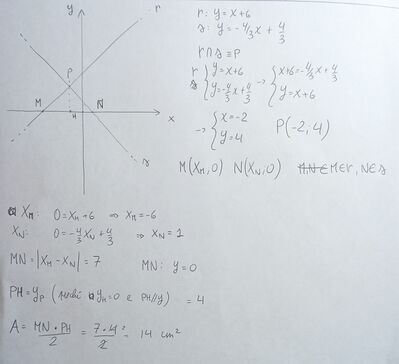 y
r
P
M
H
N
x
s
r: y = x+6
s: y = -4/3 x + 4/3
r ∩ s ≡ P
r { y = x+6 → { x+6 = -4/3 x + 4/3
s { y = -4/3 x + 4/3 { y = x+6
→ { x = -2
{ y = 4
P(-2; 4)
M(x_M; 0) N(x_N; 0) M∈r, N∈s
x_M: 0 = x_M + 6 ⇒ x_M = -6
x_N: 0 = -4/3 x_N + 4/3 ⇒ x_N = 1
MN = |x_M - x_N| = 7 MN: y = 0
PH = y_P (perché y_H = 0 e PH//y) = 4
A = MN · PH / 2 = 7 · 4² / 2 = 14 cm²